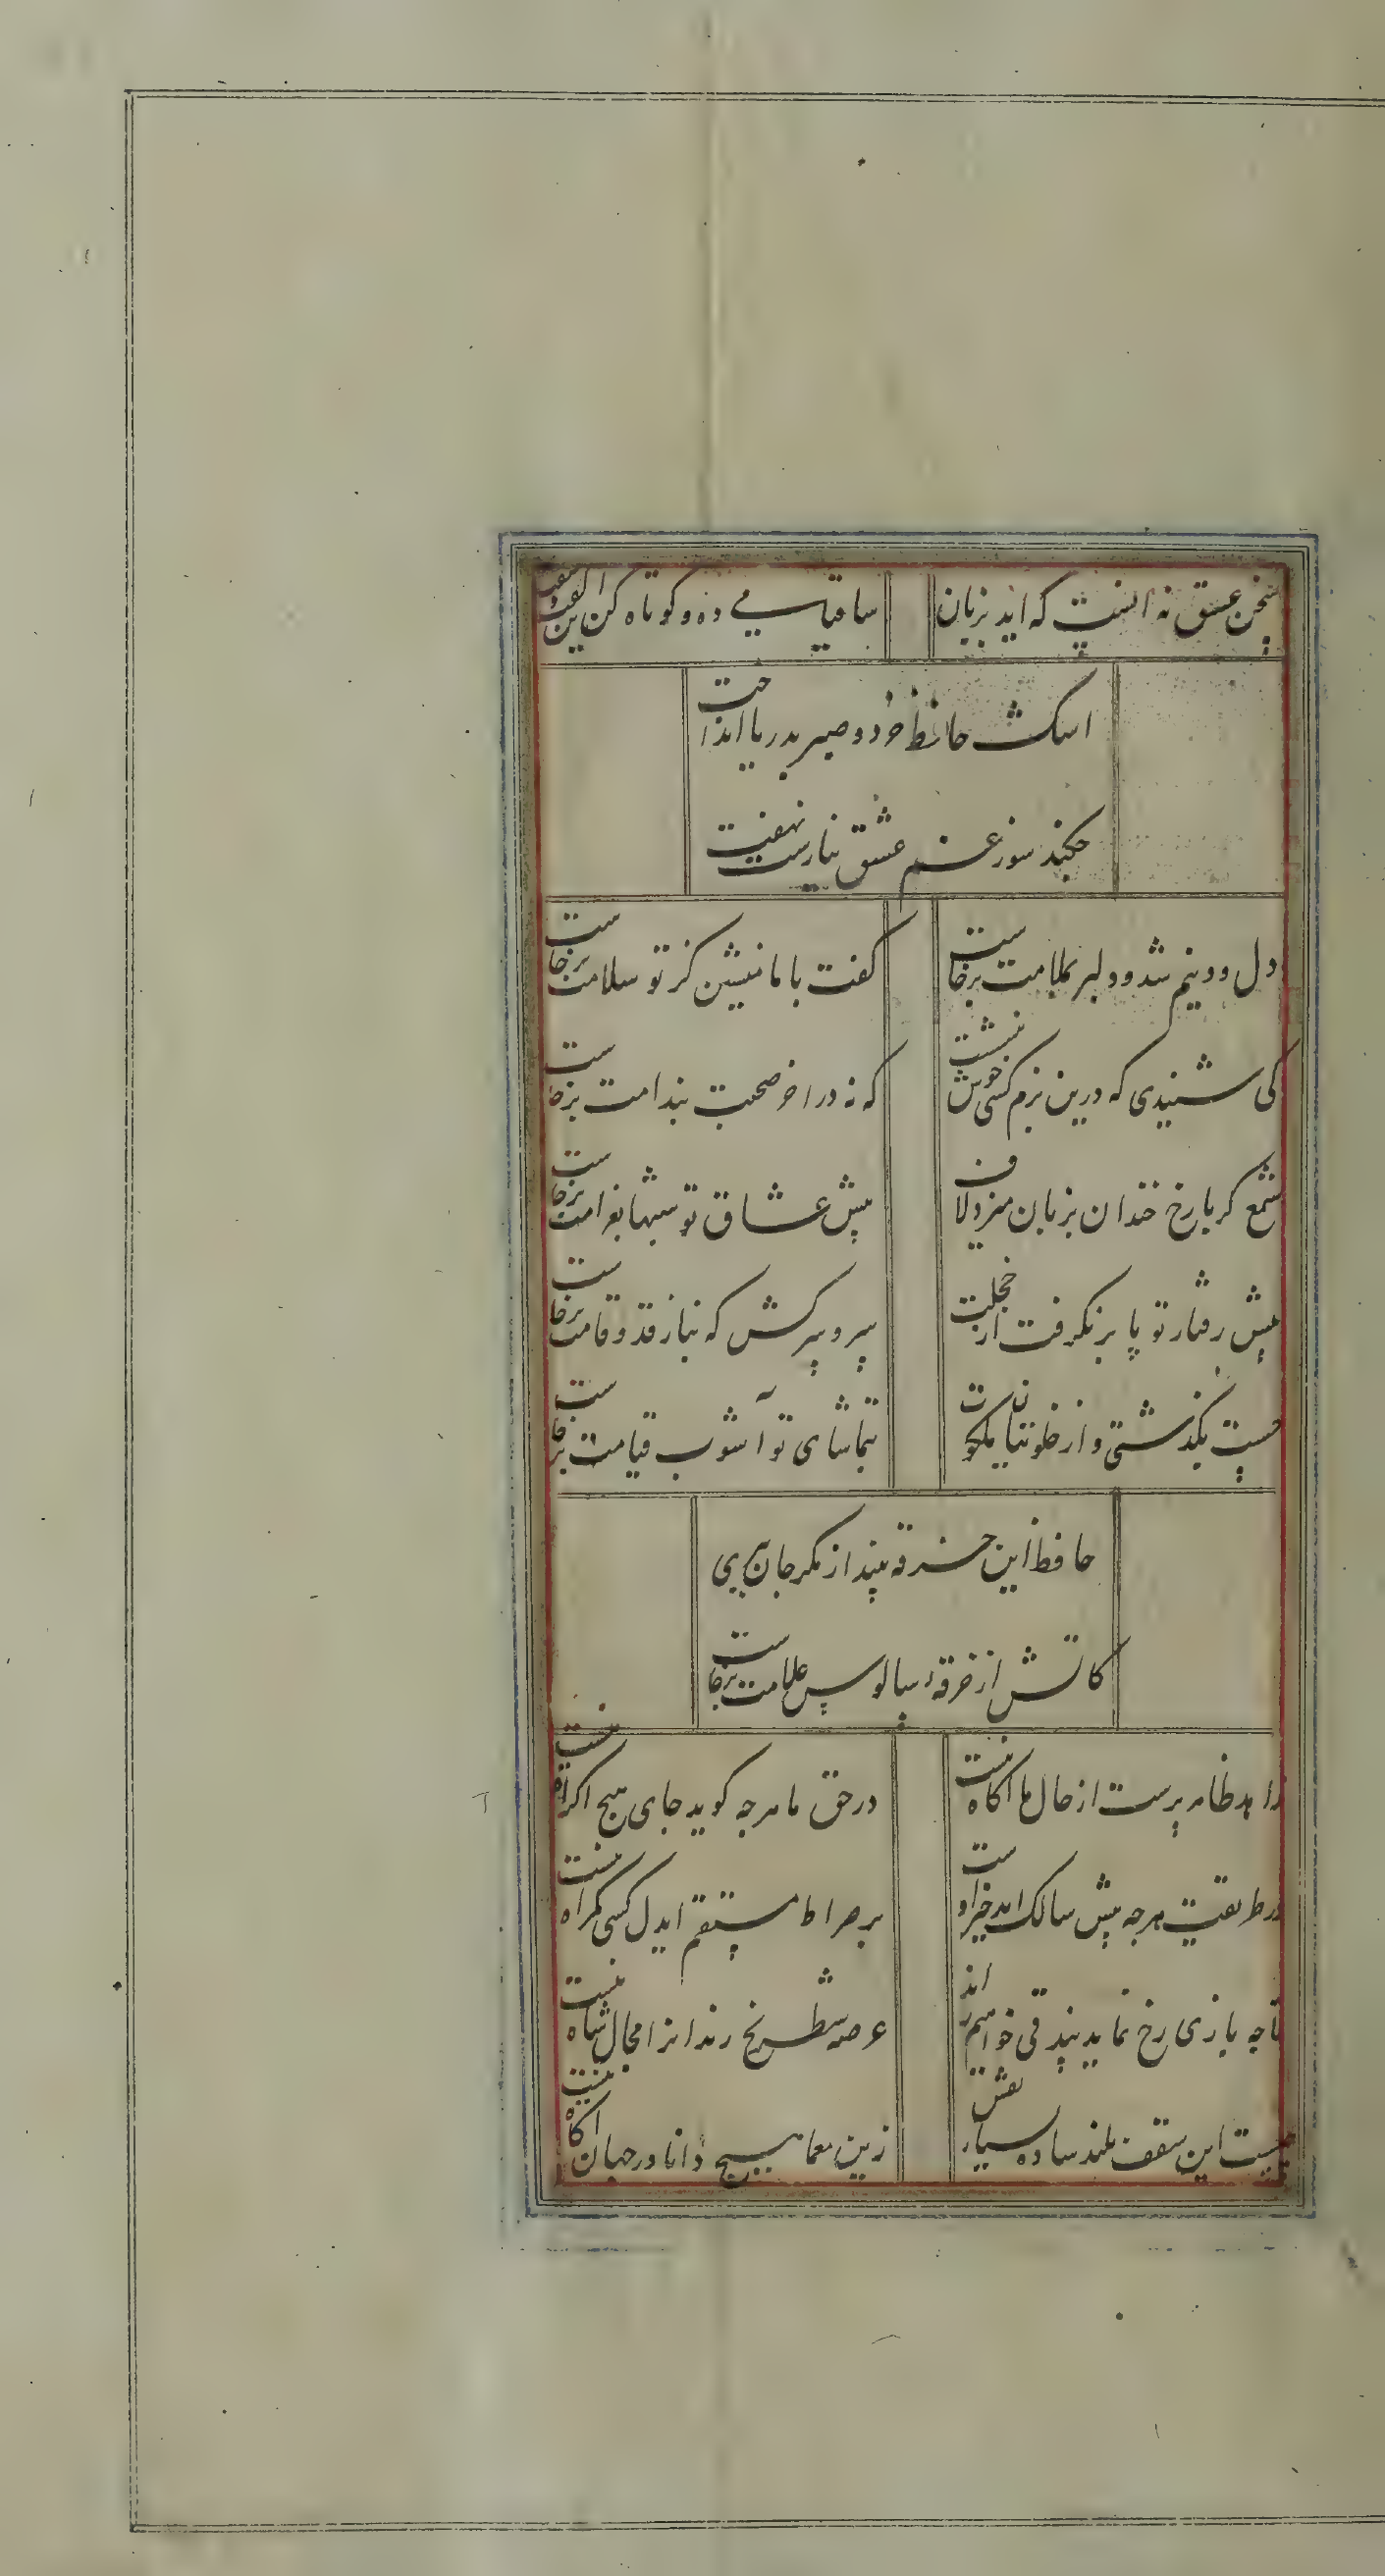 سخن عشق نه آنست که آید بزبان
ساقیا می ده و کوتاه کن این گفت و شنفت
اشک حافظ خرد و صبر بدریا انداخت
چکند سوز غم عشق نیارست نهفت
دل و دینم شد و دلبر بملامت برخاست
گفت با ما منشین کز تو سلامت برخاست
کی شنیدی که درین بزم کسی خوش بنشست
که نه در اخر صحبت بندامت برخاست
شمع کر با رخ خندان بزبان میزد لاف
پیش عشاق تو شبها بغرامت برخاست
پیش رفتار تو پا برنگرفت از خجلت
سرو سرکش که بناز قد و قامت برخاست
مست بگذشتی و از خلوتیان ملکوت
بتماشای تو آشوب قیامت برخاست
حافظ این خرقه بینداز مکر جان ببری
کاتش از خرقهٔ سالوس علامت برخاست
زاهد ظاهر پرست از حال ما اکاه نیست
در حق ما هرچه کوید جای هیچ اکراه نیست
در طریقت هرچه پیش سالک اید خیر اوست
بر صراط مستقیم ایدل کسی کمراه نیست
تا چه بازی رخ نماید بیدقی خواهیم راند
عرصه شطرنج رندانرا مجال شاه نیست
چیست این سقف بلند ساده بسیار نقش
زین معما هیچ دانا در جهان اکاه نیست